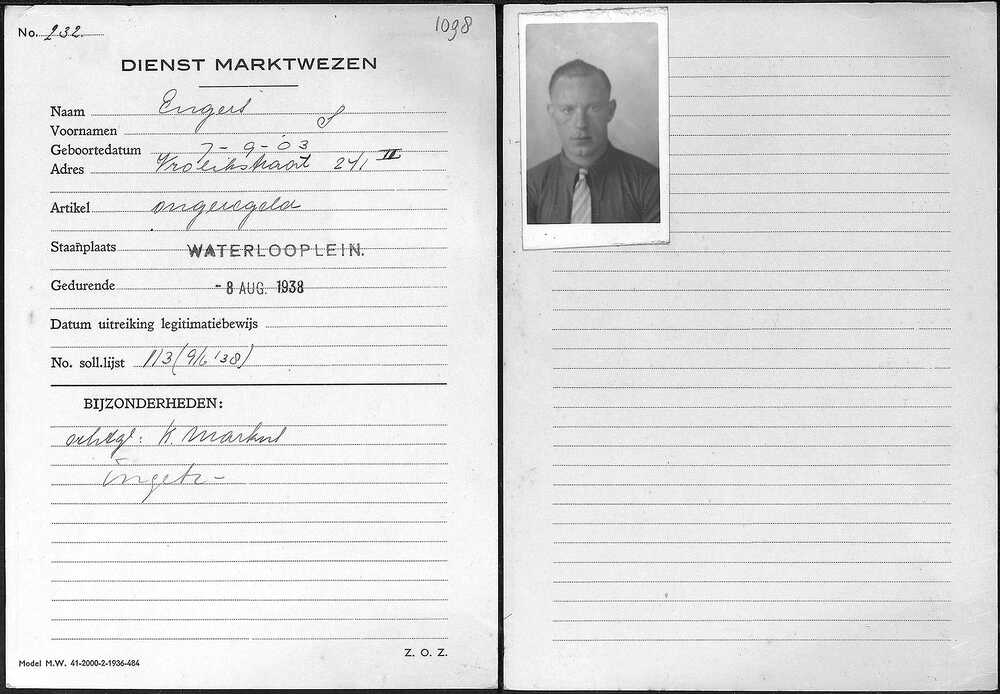 No. 232.
1098
DIENST MARKTWEZEN
Naam Engers
Voornamen S
Geboortedatum 7-9-03
Adres Vrolikstraat 241 II
Artikel ongeregeld
Staanplaats WATERLOOPLEIN.
Gedurende - 8 AUG. 1938
Datum uitreiking legitimatiebewijs
No. soll.lijst 113 (9/6 '38)
BIJZONDERHEDEN:
echtgt: K. Markus
Z. O. Z.
Model M.W. 41-2000-2-1936-484